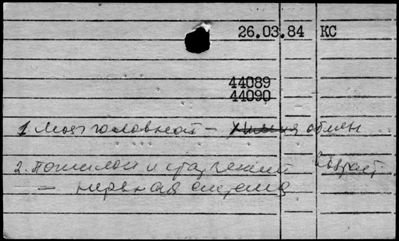 26.03.84 КС
44089
44090
1. Мозг головной - химия обмен
2. Пожилой и старческий возраст
- нервная система